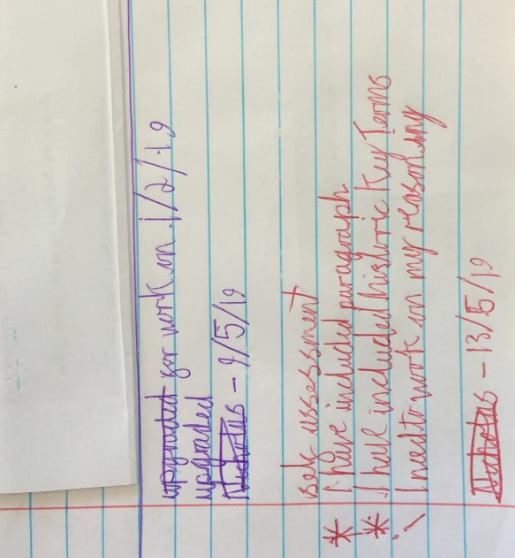 upgraded for work on 1/2/19
upgraded
Nicholas - 9/5/19
self assessment
* I have included paragraph
* I have included historic Key Terms
- I need to work on my reasoning
Nicholas - 13/5/19